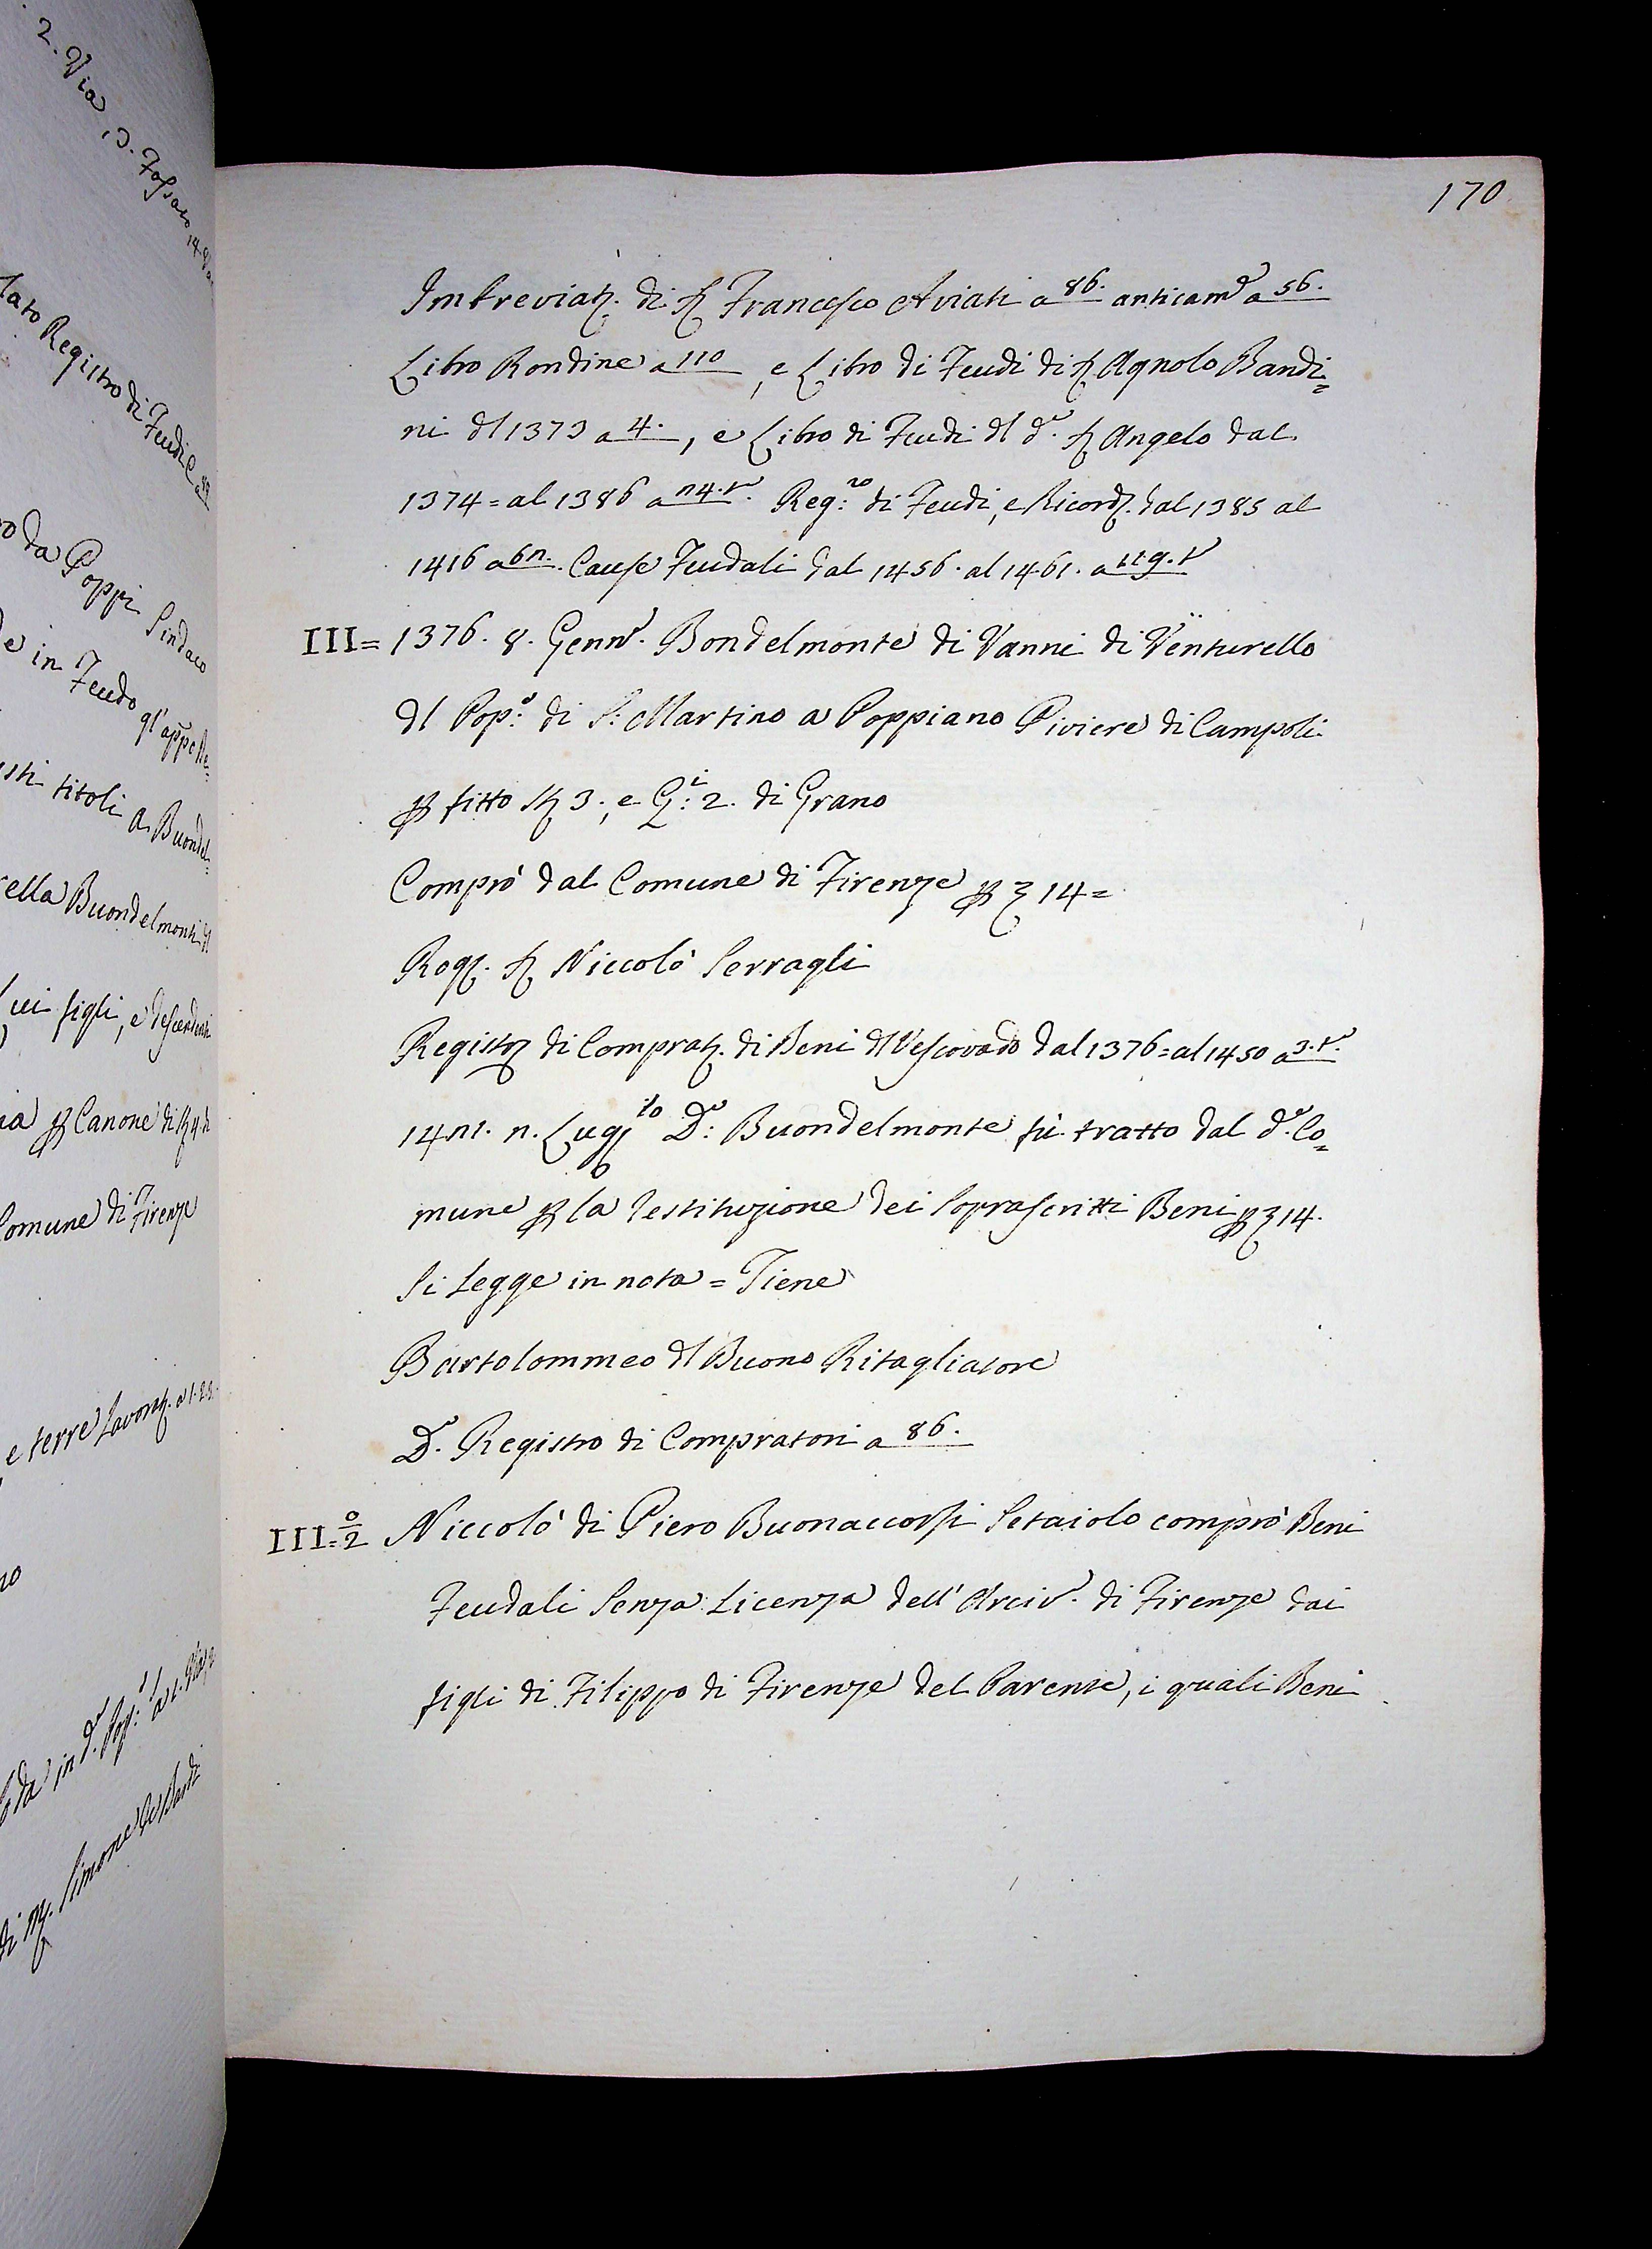 2. Via, 3. Fossato, 4. Va
tato Registro di Feudi C
o da Poppi Sindaco
e in Feudo gl'appo
sti titoli a Buondel=
rella Buondelmonti dl
ui figli, e descendenti
ia ꝑ Canone di
Comune di Firenze
e terre Lavorat. a 1.
da in d.º Pop:
di Simone
170
Imbreviat. di S. Francesco Aviati a 86. anticam.e a 56.
Libro Rondine a 110, e Libro di Feudi di S. Agnolo Bandi=
ni dl 1373 a 4., e Libro di Feudi dl d.º S. Angelo dal
1374= al 1386 a 24.t.º Reg:ro di Feudi, e Ricord. dal 1385 al
1416 a 62. Cause Feudali dal 1456. al 1461. a 119.t
III= 1376. 8. Genn.º Bondelmonte di Vanni di Venturello
dl Pop:º di S: Martino a Poppiano Piviere di Campoli
ꝑ fitto St. 3., e Q:i 2. di Grano
Comprò dal Comune di Firenze ꝑ 14=
Rog. S. Niccolò Serragli
Registr. di Comprat. di Beni dl Vescovado dal 1376= al 1450 a 3.t.º
14 Lug.lio D:º Buondelmonte fù tratto dal d.º Co=
mune ꝑ la restituzione dei soprascritti Beni ꝑ 14.
Si Legge in nota = Tiene
Bartolommeo dl Buono Ritagliatore
D.º Registro di Compratori a 86.
III=º/2 Niccolò di Piero Buonaccorsi Setaiolo comprò Beni
Feudali Senza Licenza dell' Arciv.º di Firenze dai
figli di Filippo di Firenze del Parente, i quali Beni